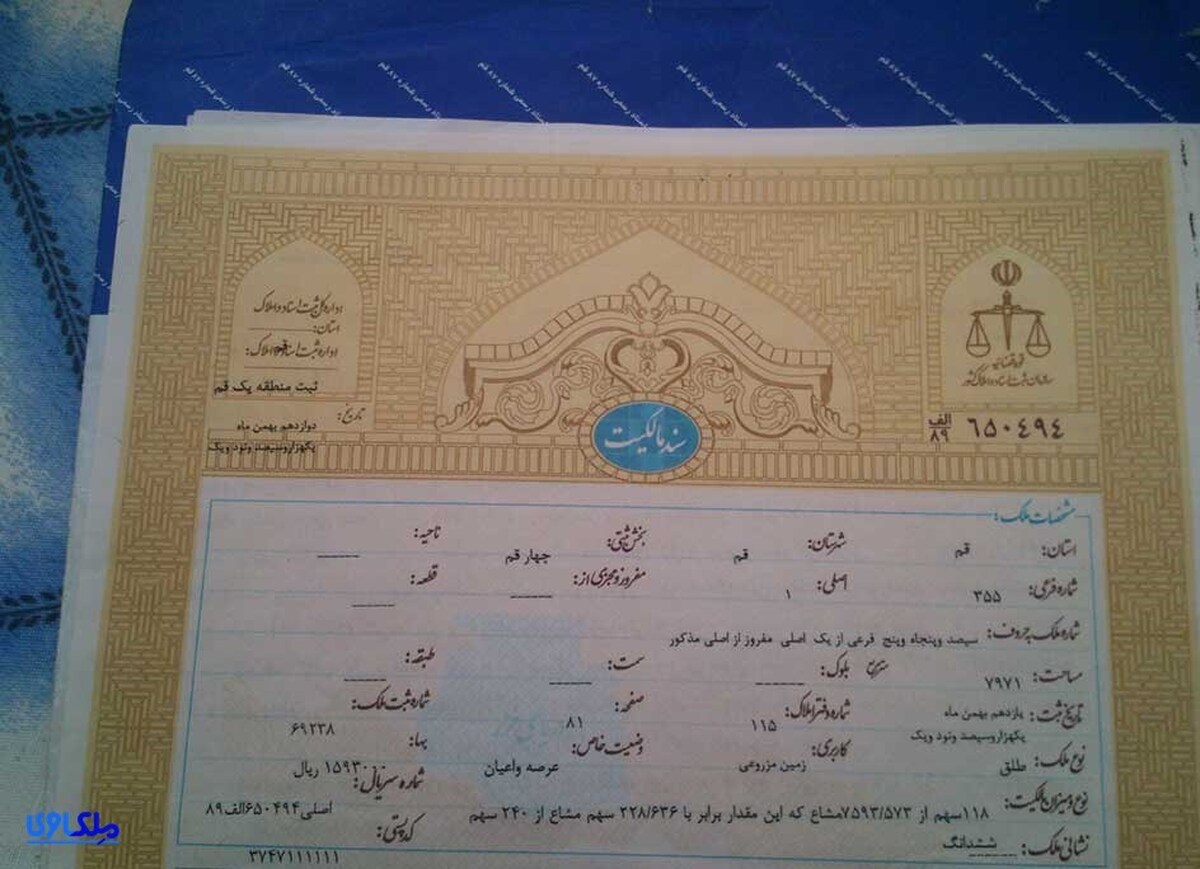 اداره کل ثبت اسناد و املاک
استان:
قم
اداره ثبت اسناد و املاک:
ثبت منطقه یک قم
تاریخ:
دوازدهم بهمن ماه
یکهزاروسیصد ونود ویک
قوه قضائیه
سازمان ثبت اسناد و املاک کشور
۶۵۰۴۹۴ الف ۸۹
سند مالکیت
مشخصات ملک:
استان: قم شهرستان: قم بخش ثبتی: چهار قم ناحیه: ------
شماره فرعی: ۳۵۵ اصلی: ۱ مفروز و مجزی از: ------ قطعه: ------
شماره ملک بحروف: سیصد وپنجاه وپنج فرعی از یک اصلی مفروز از اصلی مذکور
مساحت: ۷۹۷۱ مترمربع بلوک: ------ سمت: ------ طبقه: ------
تاریخ ثبت: یازدهم بهمن ماه یکهزاروسیصد ونود ویک شماره دفتر املاک: ۱۱۵ صفحه: ۸۱ شماره ثبت ملک: ۶۹۲۳۸
نوع ملک: طلق کاربری: زمین مزروعی وضعیت خاص: عرصه واعیان بها: ۱۵۹۳۰۰۰۰ ریال
نوع و میزان مالکیت: ۱۱۸سهم از ۷۵۹۳/۵۷۳مشاع که این مقدار برابر با ۲۲۸/۶۳۶ سهم مشاع از ۲۴۰ سهم ششدانگ شماره سریال: اصلی۶۵۰۴۹۴الف۸۹
نشانی ملک: ------ کدپستی: ۳۷۴۷۱۱۱۱۱۱
ملکاوی